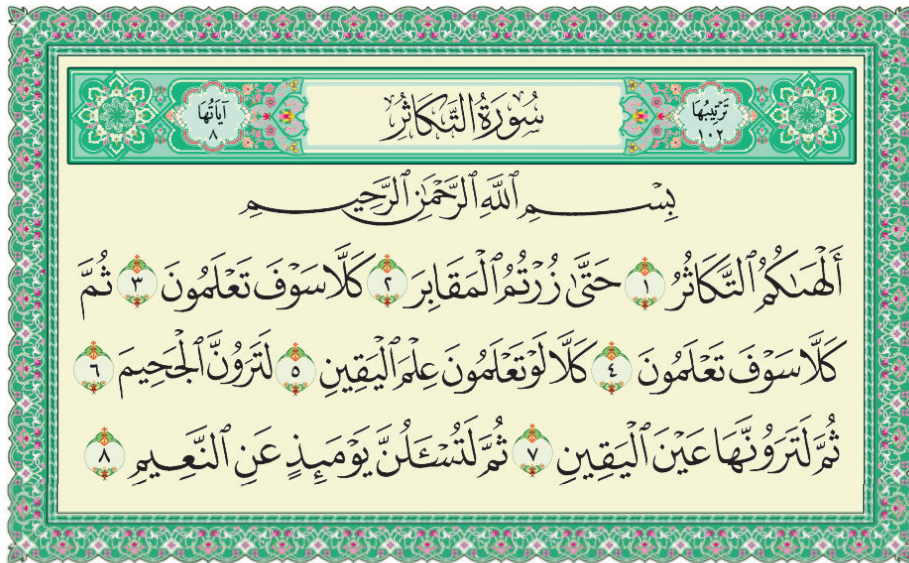 تَرْتِيبُهَا ١٠٢ سُورَةُ التَّكَاثُرِ آيَاتُهَا ٨
بِسْمِ ٱللَّهِ ٱلرَّحْمَٰنِ ٱلرَّحِيمِ
أَلْهَىٰكُمُ ٱلتَّكَاثُرُ ١ حَتَّىٰ زُرْتُمُ ٱلْمَقَابِرَ ٢ كَلَّا سَوْفَ تَعْلَمُونَ ٣ ثُمَّ
كَلَّا سَوْفَ تَعْلَمُونَ ٤ كَلَّا لَوْ تَعْلَمُونَ عِلْمَ ٱلْيَقِينِ ٥ لَتَرَوُنَّ ٱلْجَحِيمَ ٦
ثُمَّ لَتَرَوُنَّهَا عَيْنَ ٱلْيَقِينِ ٧ ثُمَّ لَتُسْـَٔلُنَّ يَوْمَئِذٍ عَنِ ٱلنَّعِيمِ ٨